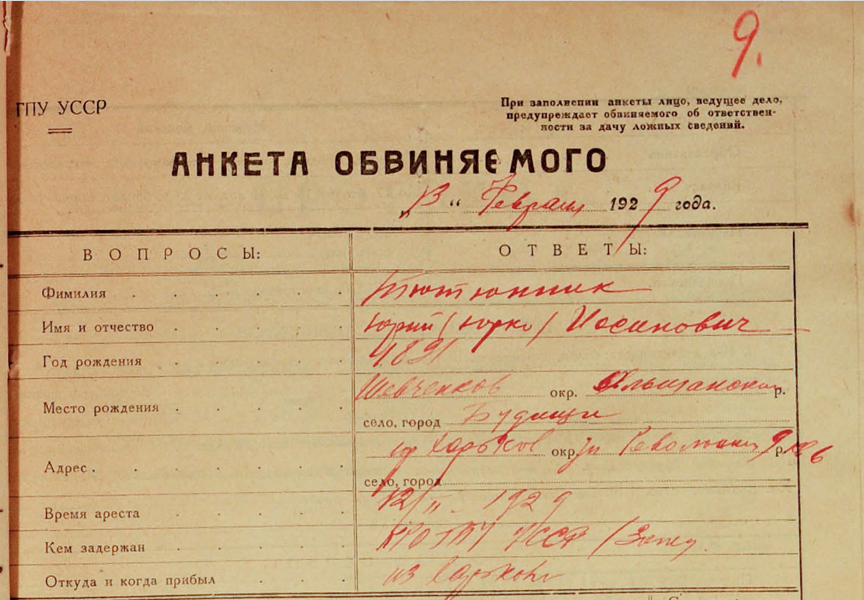 9.
ГПУ УССР
При заполнении анкеты лицо, ведущее дело,
предупреждает обвиняемого об ответствен-
ности за дачу ложных сведений.
АНКЕТА ОБВИНЯЕМОГО
„13 “ Февраля 1929 года.
ВОПРОСЫ: ОТВЕТЫ:
Фамилия Тютюнник
Имя и отчество Юрий /Юрко/ Иосипович
Год рождения 1891
Место рождения Шевченков окр. Ольшанский р.
село, город Будищи
Адрес. гор Харьков окр. ул Революции 9 р.
село, город
Время ареста 12/II - 1929
Кем задержан КРО ГПУ УССР
Откуда и когда прибыл из Харькова